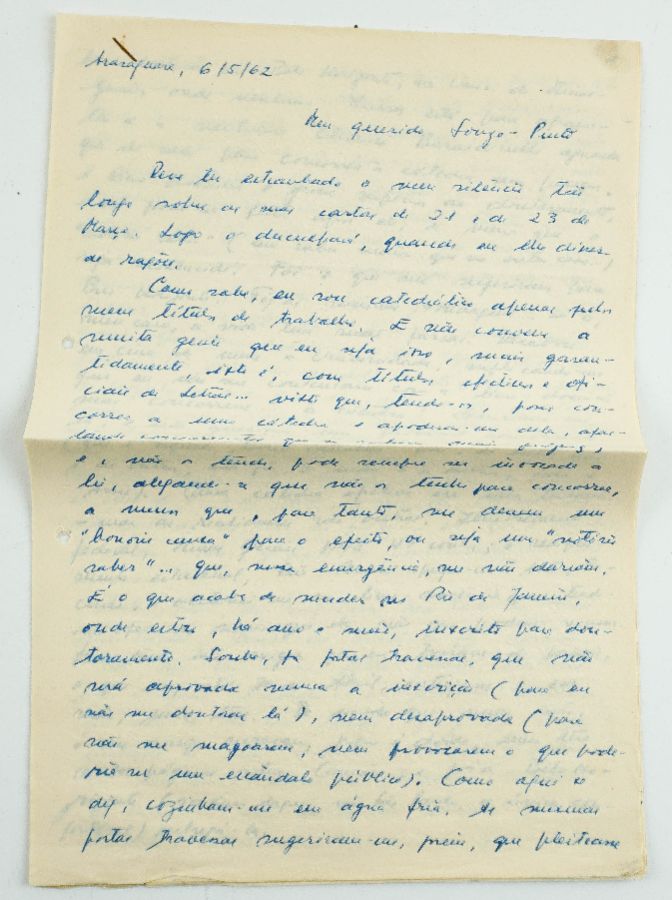 Araraquara, 6/5/62
Meu querido Souza-Pinto
Deve ter estranhado o meu silêncio tão
longo sobre as suas cartas de 21 e de 23 de
Março. Logo o desculpará, quando eu lhe disser
a razão.
Como sabe, eu sou catedrático apenas pelos
meus títulos de trabalho. E não convém a
muita gente que eu seja isso, mais garan-
tidamente, isto é, com títulos efectivos e ofi-
ciais de Letras... visto que, tendo-os, posso con-
correr a uma cátedra e apoderar-me dela,
e, não o tendo, pode sempre ser invocada a
lei, alegando-se que não o tenho para concorrer,
a menos que, para tanto, me dessem um
"honoris causa" para o efeito, ou seja um "notório
saber"... que, numa emergência, me não dariam.
É o que acaba de suceder no Rio de Janeiro,
onde estou, há ano e meio, inscrito para dou-
toramento. Soube, por portas travessas, que não
será aprovada nunca a inscrição (para eu
não me doutorar lá), nem desaprovada (para
não me magoarem, nem provocarem o que pode-
ria ser um escândalo público). Como aqui se
diz, cozinham-me em água fria. As mesmas
portas travessas sugeriram-me, porém, que pleiteasse